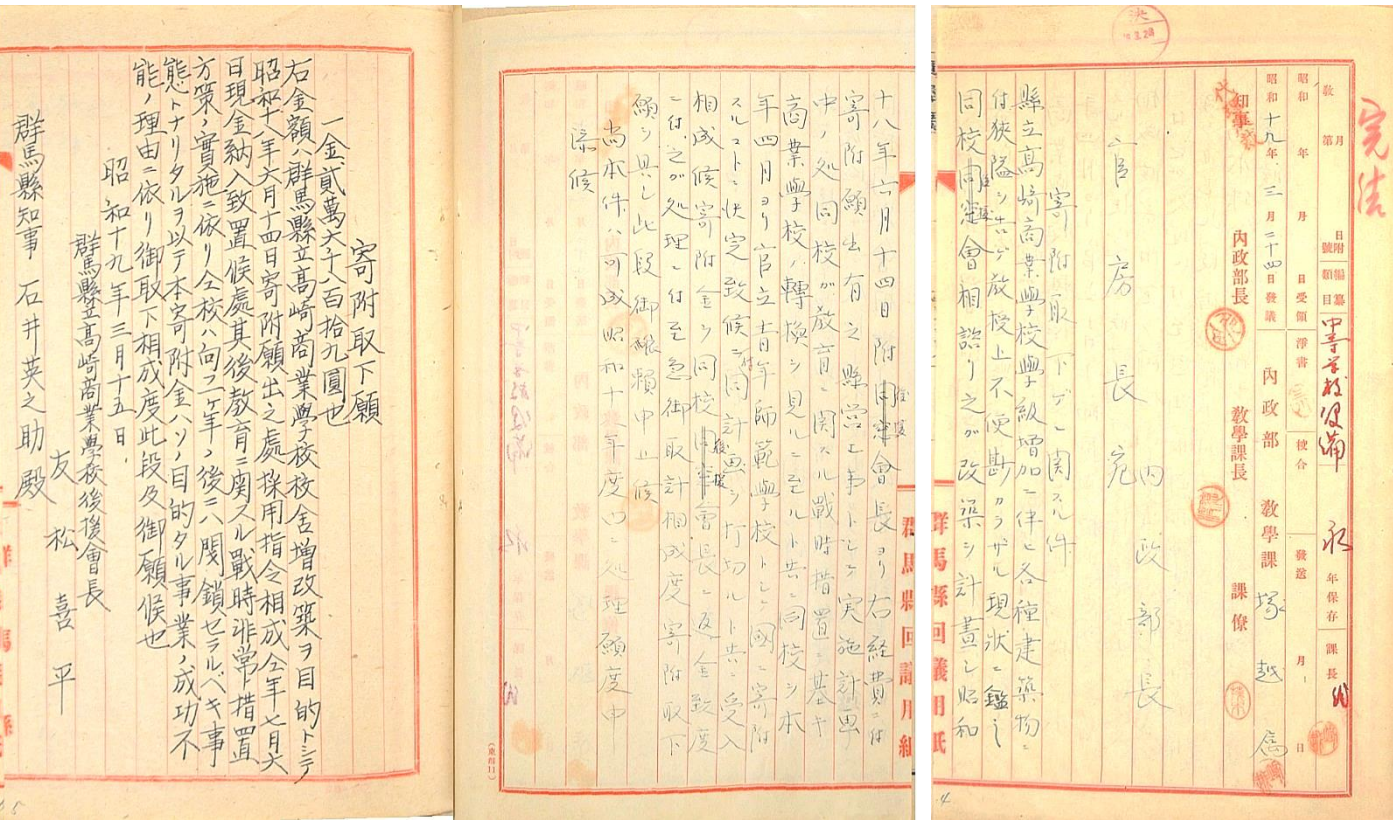 完結
決
19.3.28
月 日附
教第 號
編纂類目 中等学校設備
永年保存
課長
昭和 年 月 日受領
淨書
校合
發送 月 日
昭和十九年三月二十四日發議
內政部 教學課 塚越
知事
內政部長
教學課長
課僚
內政部長
官房長宛
寄附取下ゲニ関スル件
縣立高崎商業學校學級増加ニ伴ヒ各種建築物ニ
付狹隘ヲ告ゲ教授上不便尠カラザル現状ニ鑑ミ
同校後援會相諮リ之ガ改築ヲ計畫シ昭和
群馬縣回議用紙
十八年六月十四日附後援會長ヨリ右経費ニ付
寄附願出有之縣営工事トシテ実施計画
中ノ処同校ガ教育ニ関スル戰時措置ニ基キ
商業學校ノ轉換ヲ見ルニ至ルト共ニ同校ヲ本
年四月ヨリ官立青年師範學校トシテ國ニ寄附
スルコトニ決定致候ニ付同計画ヲ打切ルト共ニ受入
相成候寄附金ヲ同校後援會長ニ返金致度
ニ付之ガ処理ニ付至急御取計相成度寄附取下
願ヲ具シ此段御依賴申上候
尚本件ハ可成昭和十八年度内ニ処理願度申
添候
群馬縣回議用紙
寄附取下願
一金貳萬六千八百拾九圓也
右金額ハ群馬縣立高崎商業学校校舎増改築ヲ目的トシテ
昭和十八年六月十四日寄附願出之處採用指令相成仝年七月六
日現金納入致置候處其後教育ニ関スル戰時非常措置
方策ノ實施ニ依リ仝校ハ向フ二ヶ年ノ後ニハ閉鎖セラルベキ事
態トナリタルヲ以テ本寄附金ハソノ目的タル事業ノ成功不
能ノ理由ニ依リ御取下相成度此段及御願候也
昭和十九年三月十五日
群馬縣立高崎商業學校後援會長
友松喜平
群馬縣知事 石井英之助殿